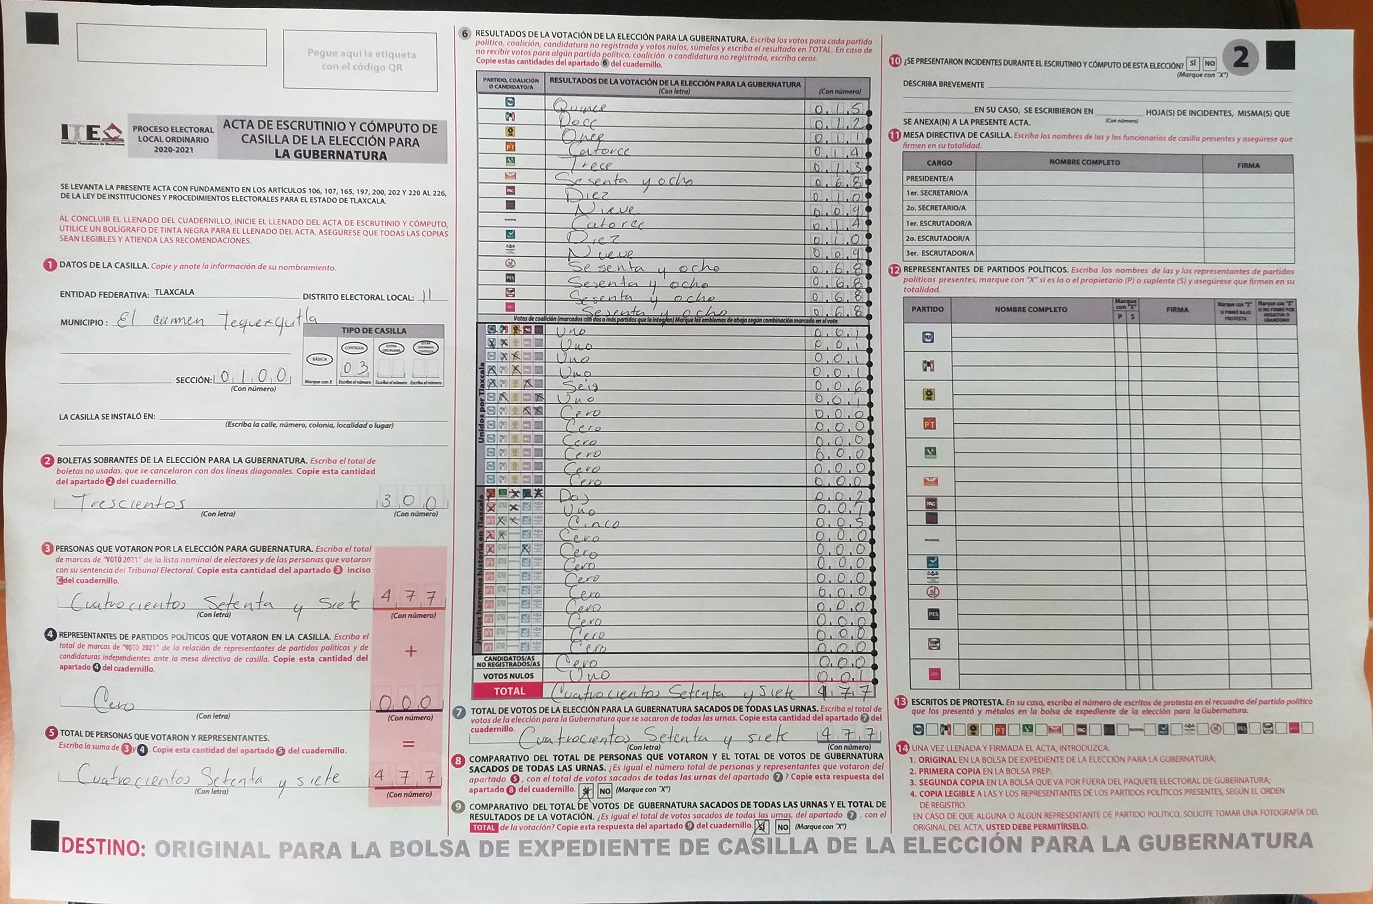 Pegue aquí la etiqueta
con el código QR
ITE
PROCESO ELECTORAL
LOCAL ORDINARIO
2020-2021
ACTA DE ESCRUTINIO Y CÓMPUTO DE
CASILLA DE LA ELECCIÓN PARA
LA GUBERNATURA
SE LEVANTA LA PRESENTE ACTA CON FUNDAMENTO EN LOS ARTÍCULOS 106, 107, 165, 197, 200, 202 Y 220 AL 226,
DE LA LEY DE INSTITUCIONES Y PROCEDIMIENTOS ELECTORALES PARA EL ESTADO DE TLAXCALA.
AL CONCLUIR EL LLENADO DEL CUADERNILLO, INICIE EL LLENADO DEL ACTA DE ESCRUTINIO Y CÓMPUTO,
UTILICE UN BOLÍGRAFO DE TINTA NEGRA PARA EL LLENADO DEL ACTA, ASEGÚRESE QUE TODAS LAS COPIAS
SEAN LEGIBLES Y ATIENDA LAS RECOMENDACIONES.
1 DATOS DE LA CASILLA. Copie y anote la información de su nombramiento.
ENTIDAD FEDERATIVA: TLAXCALA DISTRITO ELECTORAL LOCAL: 11
MUNICIPIO: El carmen Tequexquitla
TIPO DE CASILLA
BÁSICA CONTIGUA
03
Marque con X Escriba el número Escriba el número Escriba el número
SECCIÓN: 0100
(Con número)
LA CASILLA SE INSTALÓ EN:
(Escriba la calle, número, colonia, localidad o lugar)
2 BOLETAS SOBRANTES DE LA ELECCIÓN PARA LA GUBERNATURA. Escriba el total de
boletas no usadas, que se cancelaron con dos líneas diagonales. Copie esta cantidad
del apartado 2 del cuadernillo.
Trescientos 300
(Con letra) (Con número)
3 PERSONAS QUE VOTARON POR LA ELECCIÓN PARA GUBERNATURA. Escriba el total
de marcas de "VOTÓ 2021" de la lista nominal de electores y de las personas que votaron
con su sentencia del Tribunal Electoral. Copie esta cantidad del apartado 3 inciso
C del cuadernillo.
Cuatrocientos Setenta y Siete 477
(Con letra) (Con número)
4 REPRESENTANTES DE PARTIDOS POLÍTICOS QUE VOTARON EN LA CASILLA. Escriba el
total de marcas de "VOTÓ 2021" de la relación de representantes de partidos políticos y de
candidaturas independientes ante la mesa directiva de casilla. Copie esta cantidad del
apartado 4 del cuadernillo.
+
Cero 000
(Con letra) (Con número)
5 TOTAL DE PERSONAS QUE VOTARON Y REPRESENTANTES.
Escriba la suma de 3 y 4. Copie esta cantidad del apartado 5 del cuadernillo.
=
Cuatrocientos Setenta y siete 477
(Con letra) (Con número)
6 RESULTADOS DE LA VOTACIÓN DE LA ELECCIÓN PARA LA GUBERNATURA. Escriba los votos para cada partido
político, coalición, candidatura no registrada y votos nulos, súmelos y escriba el resultado en TOTAL. En caso de
no recibir votos para algún partido político, coalición o candidatura no registrada, escriba ceros.
Copie estas cantidades del apartado 6 del cuadernillo.
PARTIDO, COALICIÓN
O CANDIDATO/A
RESULTADOS DE LA VOTACIÓN DE LA ELECCIÓN PARA LA GUBERNATURA
(Con letra) (Con número)
Quince 015
Doce 012
Once 011
PT Catorce 014
Trece 013
Sesenta y ocho 068
PAC Diez 010
Nueve 009
Catorce 014
Diez 010
Nueve 009
Sesenta y ocho 068
PES Sesenta y ocho 068
Sesenta y ocho 068
Sesenta y ocho 068
Votos de coalición (marcados con dos o más partidos que la integran) Marque los emblemas de abajo según combinación marcada en el voto
Unidos por Tlaxcala
Uno 001
Uno 001
Uno 001
Uno 001
Seis 006
Uno 001
Cero 000
Cero 000
Cero 000
Cero 000
Cero 000
Cero 000
Juntos haremos historia en Tlaxcala
Dos 002
Uno 001
Cinco 005
Cero 000
Cero 000
Cero 000
Cero 000
Cero 000
Cero 000
Cero 000
Cero 000
Cero 000
CANDIDATOS/AS
NO REGISTRADOS/AS Cero 000
VOTOS NULOS Uno 001
TOTAL Cuatrocientos Setenta y Siete 477
7 TOTAL DE VOTOS DE LA ELECCIÓN PARA LA GUBERNATURA SACADOS DE TODAS LAS URNAS. Escriba el total de
votos de la elección para la Gubernatura que se sacaron de todas las urnas. Copie esta cantidad del apartado 7 del
cuadernillo.
Cuatrocientos Setenta y siete 477
(Con letra) (Con número)
8 COMPARATIVO DEL TOTAL DE PERSONAS QUE VOTARON Y EL TOTAL DE VOTOS DE GUBERNATURA
SACADOS DE TODAS LAS URNAS. ¿Es igual el número total de personas y representantes que votaron del
apartado 5, con el total de votos sacados de todas las urnas del apartado 7? Copie esta respuesta del
apartado 8 del cuadernillo. NO (Marque con "X")
9 COMPARATIVO DEL TOTAL DE VOTOS DE GUBERNATURA SACADOS DE TODAS LAS URNAS Y EL TOTAL DE
RESULTADOS DE LA VOTACIÓN. ¿Es igual el total de votos sacados de todas las urnas, del apartado 7, con el
TOTAL de la votación? Copie esta respuesta del apartado 9 del cuadernillo. NO (Marque con "X")
2
10 ¿SE PRESENTARON INCIDENTES DURANTE EL ESCRUTINIO Y CÓMPUTO DE ESTA ELECCIÓN? SÍ NO
(Marque con "X")
DESCRIBA BREVEMENTE
EN SU CASO, SE ESCRIBIERON EN HOJA(S) DE INCIDENTES, MISMA(S) QUE
(Con número)
SE ANEXA(N) A LA PRESENTE ACTA.
11 MESA DIRECTIVA DE CASILLA. Escriba los nombres de las y los funcionarios de casilla presentes y asegúrese que
firmen en su totalidad.
CARGO NOMBRE COMPLETO FIRMA
PRESIDENTE/A
1er. SECRETARIO/A
2o. SECRETARIO/A
1er. ESCRUTADOR/A
2o. ESCRUTADOR/A
3er. ESCRUTADOR/A
12 REPRESENTANTES DE PARTIDOS POLÍTICOS. Escriba los nombres de las y los representantes de partidos
políticos presentes, marque con "X" si es la o el propietario (P) o suplente (S) y asegúrese que firmen en su
totalidad.
PARTIDO NOMBRE COMPLETO Marque con "X" P S FIRMA
PT
PAC
PES
13 ESCRITOS DE PROTESTA. En su caso, escriba el número de escritos de protesta en el recuadro del partido político
que los presentó y métalos en la bolsa de expediente de la elección para la Gubernatura.
14 UNA VEZ LLENADA Y FIRMADA EL ACTA, INTRODUZCA:
1. ORIGINAL EN LA BOLSA DE EXPEDIENTE DE LA ELECCIÓN PARA LA GUBERNATURA;
2. PRIMERA COPIA EN LA BOLSA PREP;
3. SEGUNDA COPIA EN LA BOLSA QUE VA POR FUERA DEL PAQUETE ELECTORAL DE GUBERNATURA;
4. COPIA LEGIBLE A LAS Y LOS REPRESENTANTES DE LOS PARTIDOS POLÍTICOS PRESENTES, SEGÚN EL ORDEN
DE REGISTRO.
EN CASO DE QUE ALGUNA O ALGÚN REPRESENTANTE DE PARTIDO POLÍTICO, SOLICITE TOMAR UNA FOTOGRAFÍA DEL
ORIGINAL DEL ACTA, USTED DEBE PERMITÍRSELO.
DESTINO: ORIGINAL PARA LA BOLSA DE EXPEDIENTE DE CASILLA DE LA ELECCIÓN PARA LA GUBERNATURA